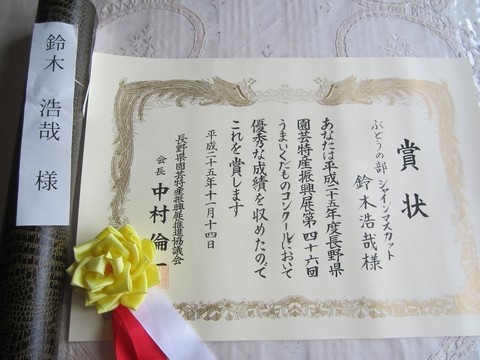 鈴木 浩哉 様
賞状
ぶどうの部 シャインマスカット
鈴木浩哉様
あなたは平成二十五年度長野県
園芸特産振興展第四十六回
うまいくだものコンクールにおいて
優秀な成績を収めたので
これを賞します
平成二十五年十一月十四日
長野県園芸特産振興展推進協議会
会長 中村倫一